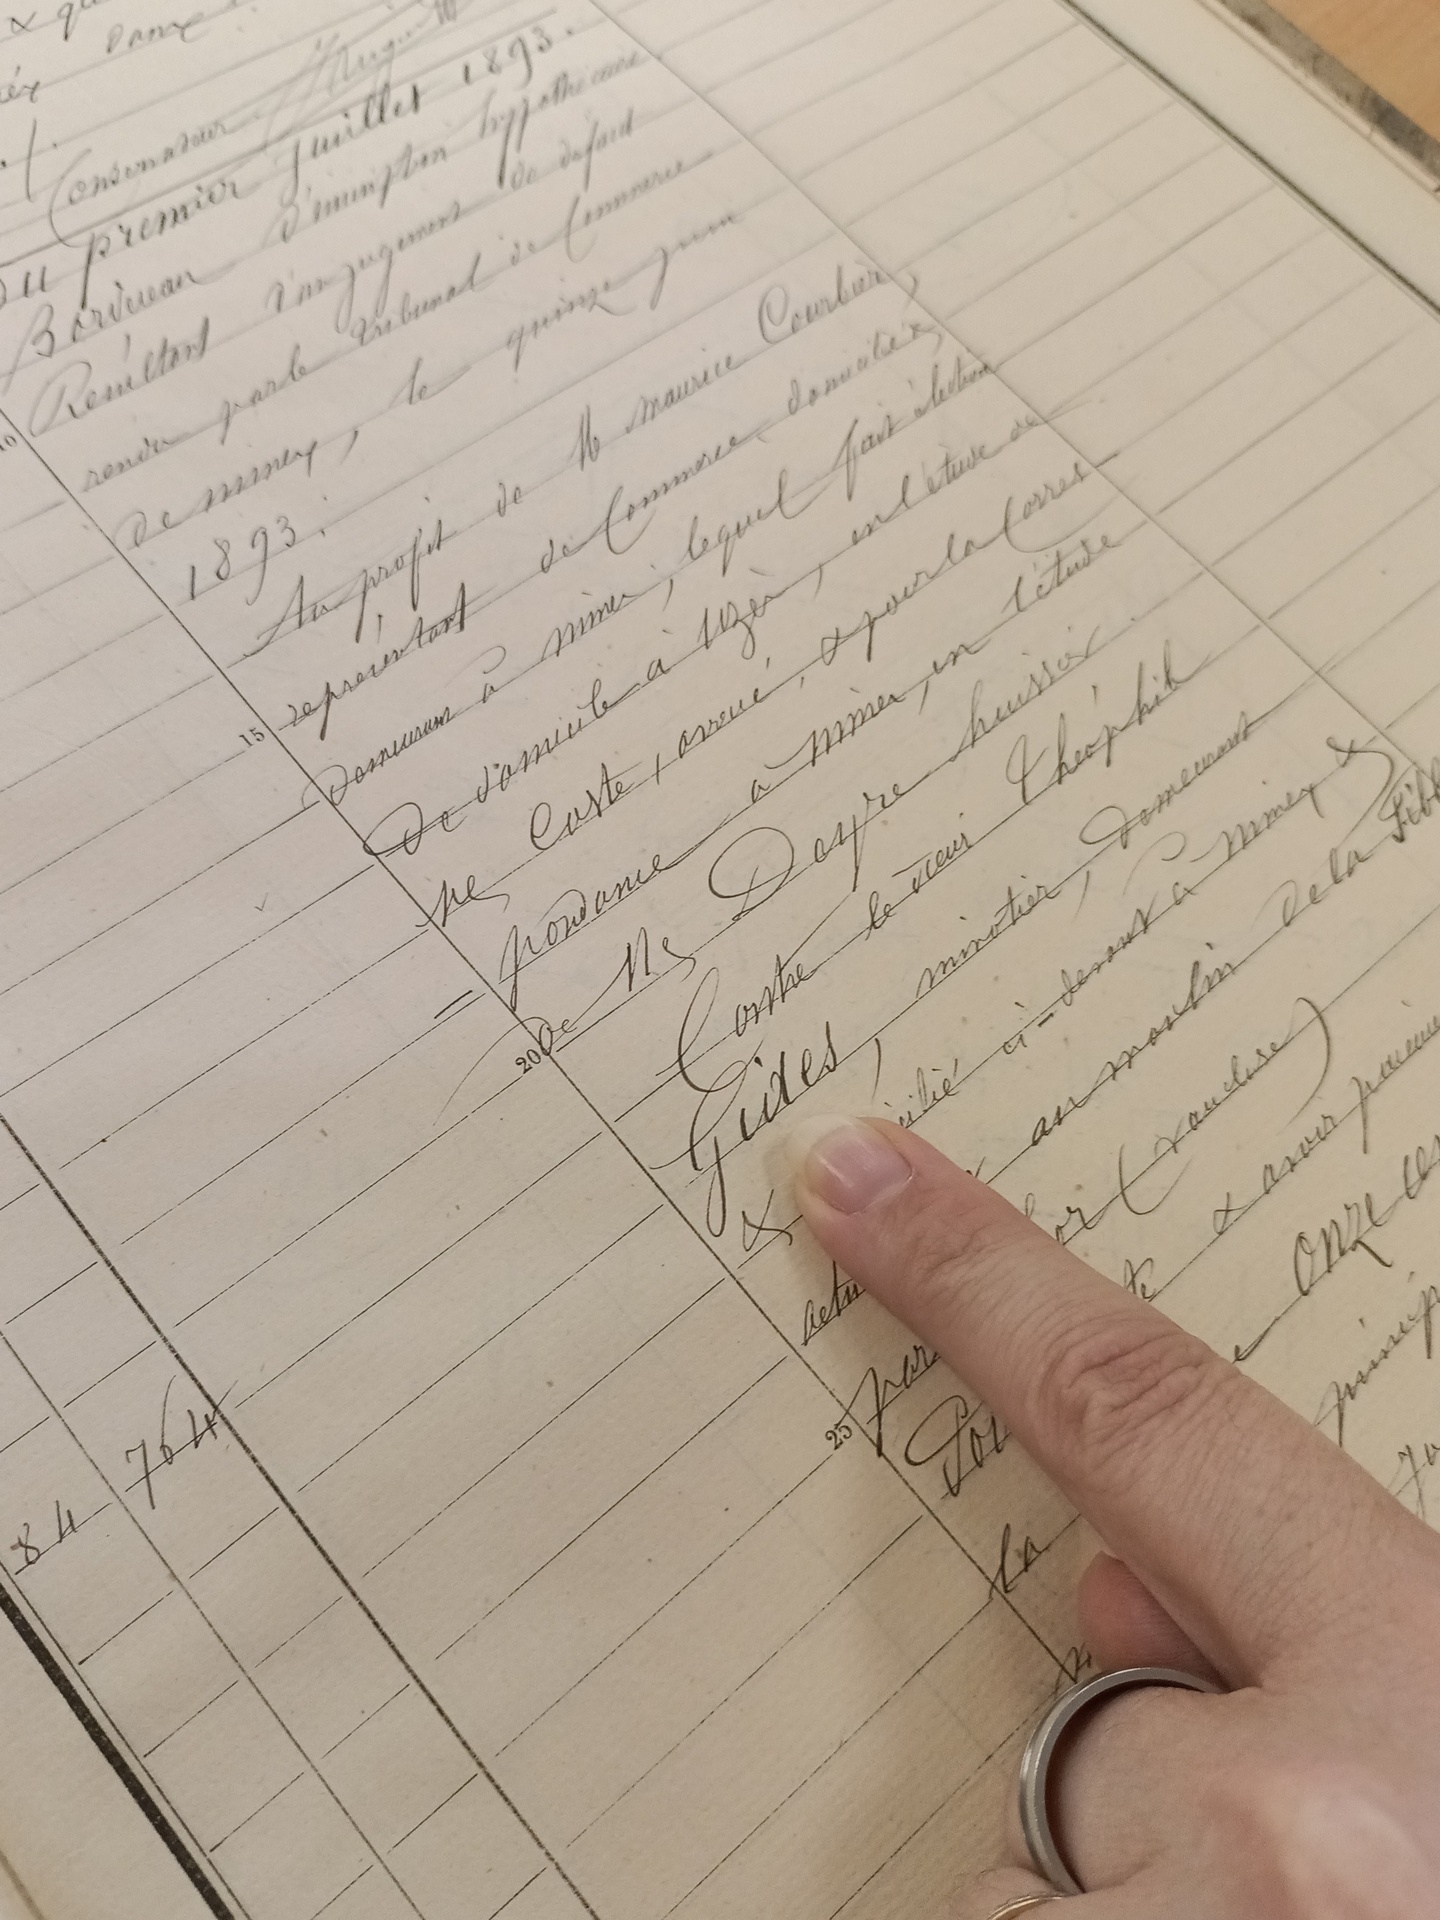 Dans
Conservateur
Du premier Juillet 1893.
Bordereau d'inscription hypothécaire
Résultant d'un jugement de défaut
rendu par le tribunal de Commerce
10
de Nimes, le quinze juin
1893.
Au profit de M Maurice Courbier,
représentant de Commerce, domicilié &
15
demeurant à Nimes, lequel fait élection
de domicile à Uzès, en l'étude de
Me Coste, avoué, & pour la Corres-
pondance à Nimes, en l'étude
20
de Me Deyre huissier.
Contre le sieur Théophile
Gides, minotier, demeurant
& cilié ci-devant à Nimes &
actu au moulin de la
par or (Vaucluse)
25
Pour te & avoir paiement
la e onze
princip
764
84